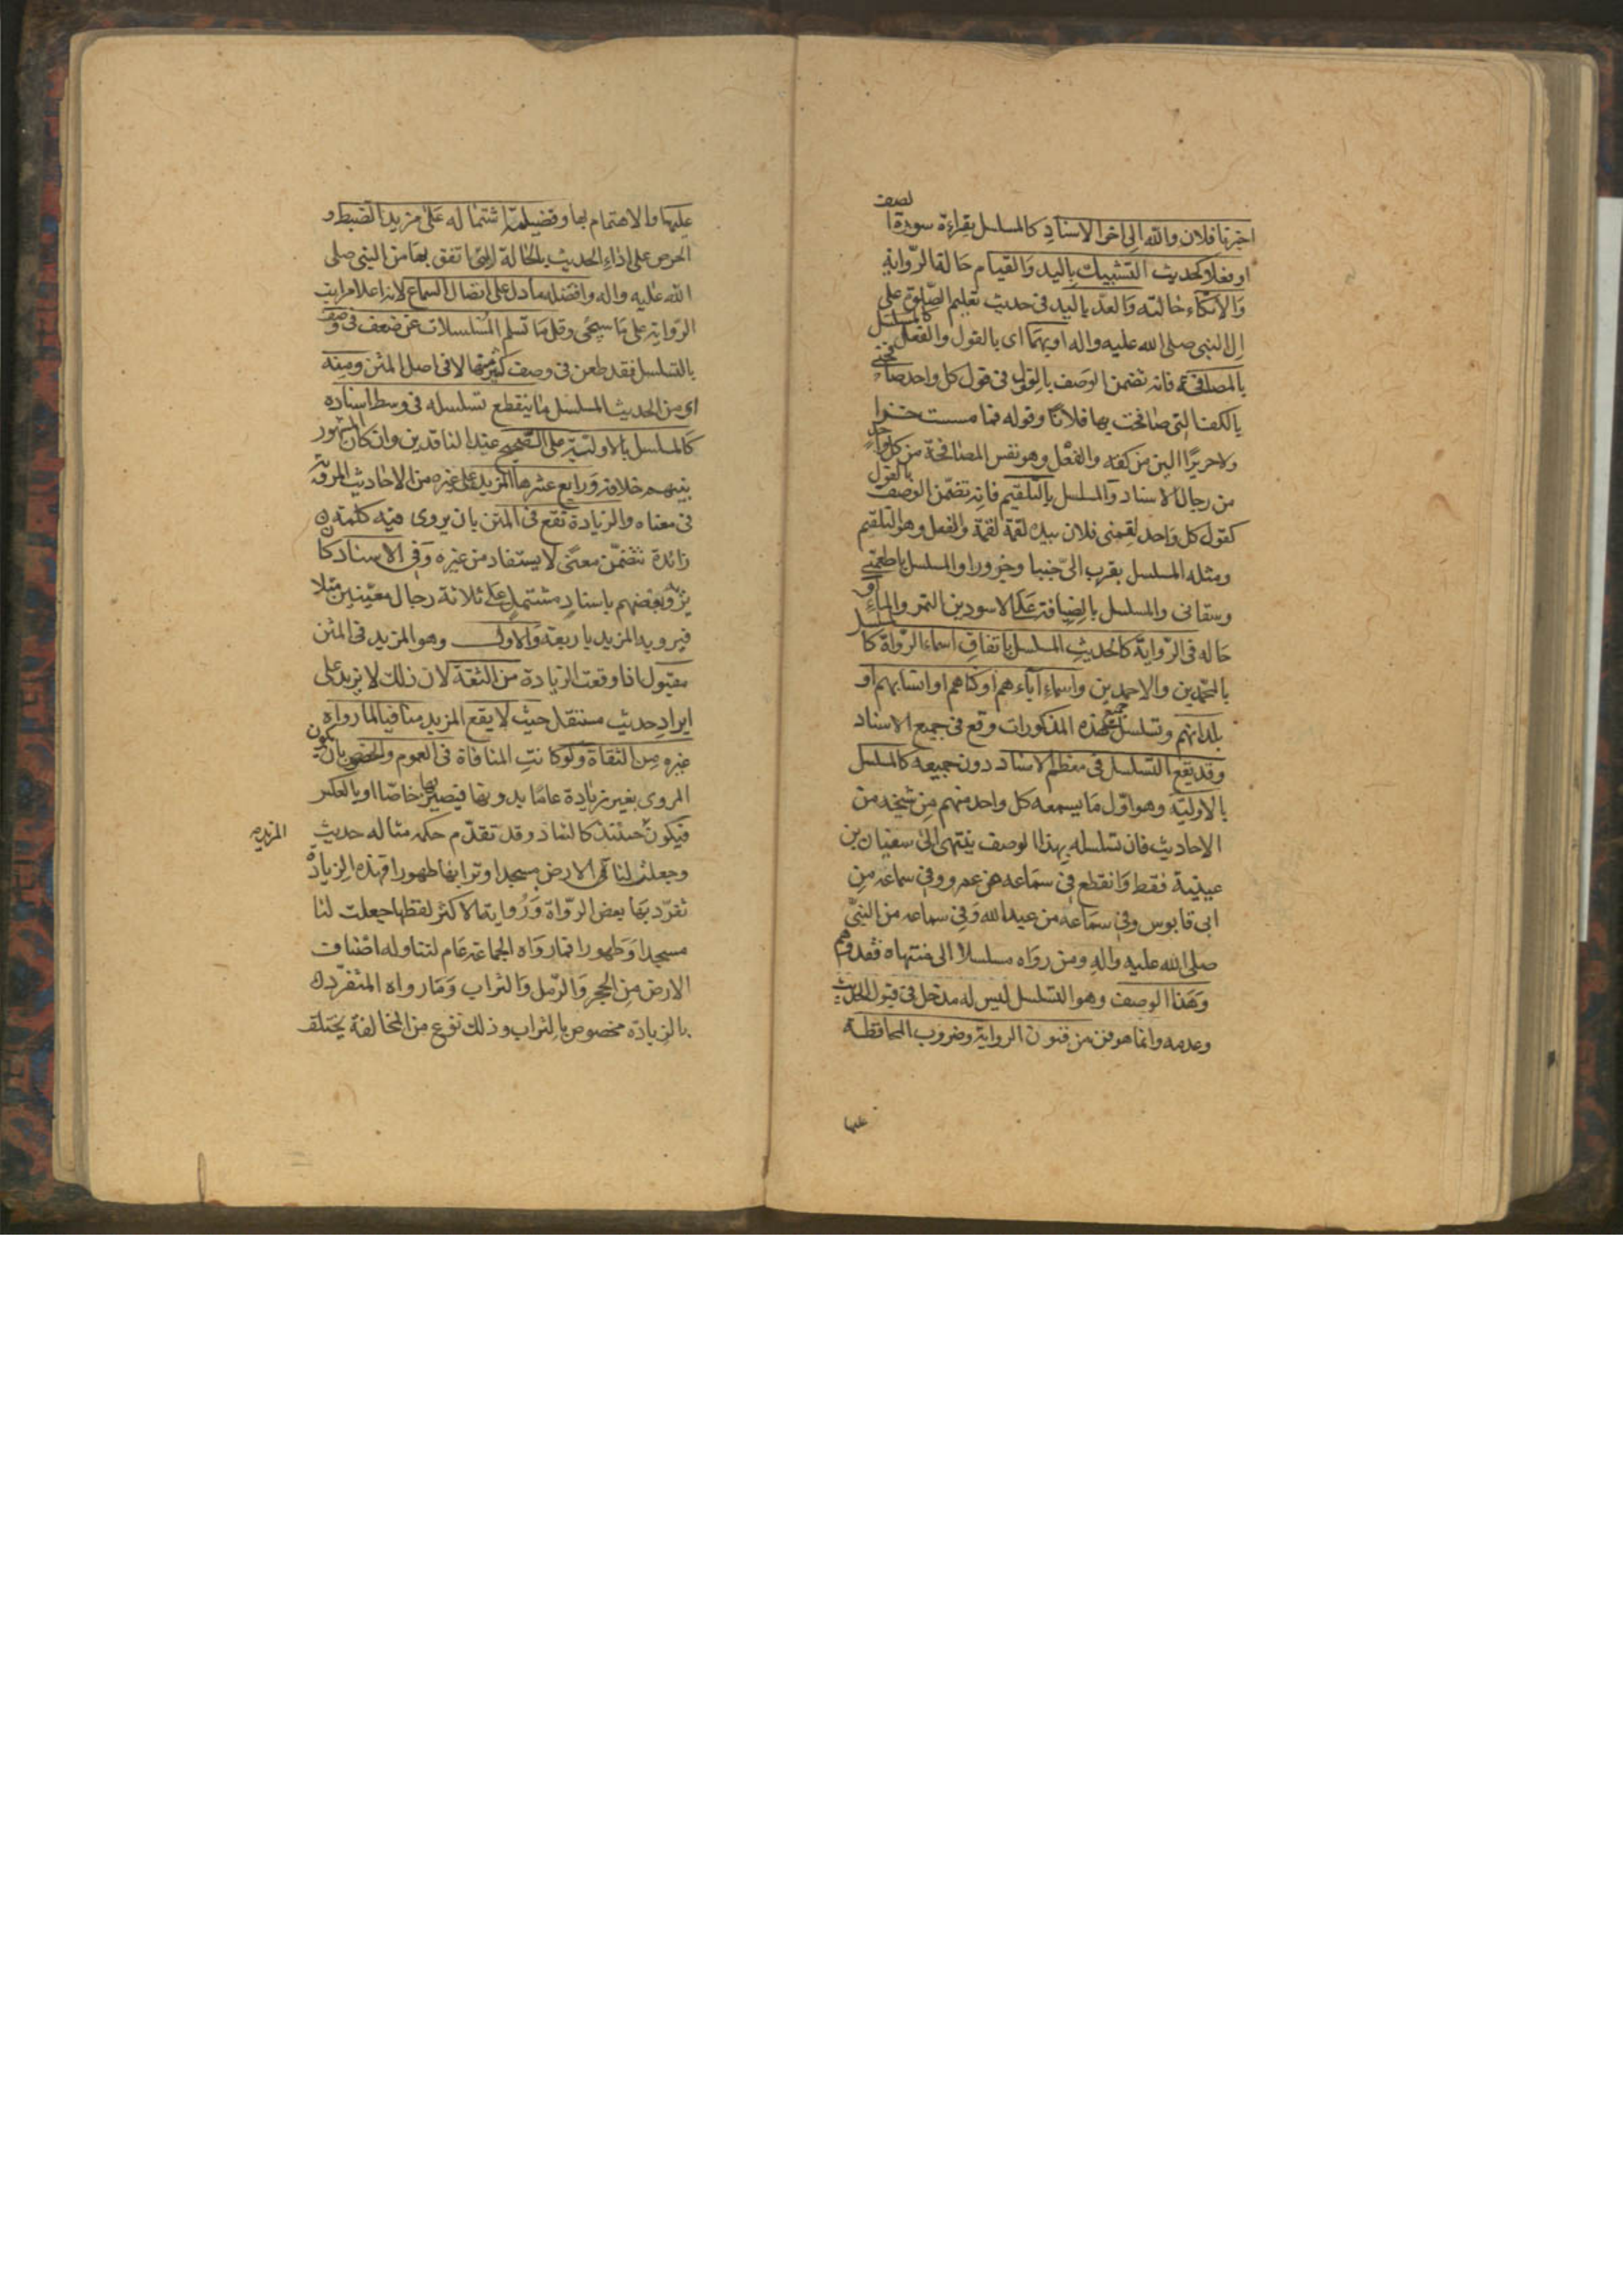 اخبرنا فلان والله الى اخر الاسناد كالمسلسل بقراءة سورة الصف
او فعلا كحديث التشبيك باليد والقيام حالة الرواية
والاتكاء حالته والعد باليد فى حديث تعليم الصلوة على
ال النبي صلى الله عليه واله او بهما اى بالقول والفعل كالمسلسل
بالمصافحة فانه تضمن الوصف بالقول فى قول كل واحد صافحنى
بالكف التى صافحت بها فلانا وقوله فما مسست خزا
ولا حريرا الين من كفه والفعل وهو نفس المصافحة من كل واحد
من رجال الاسناد والمسلسل بالتلقيم فانه تضمن الوصف بالقول
كقول كل واحد لقمنى فلان بيده لقمة لقمة والفعل وهو التلقيم
ومثله المسلسل بقرب الى خبيا وخوورا والمسلسل باطعمنى
وسقانى والمسلسل بالضيافة على الاسودين التمر والماء او
حاله فى الرواية كالحديث المسلسل باتفاق اسماء الرواة كالمسلسل
بالمحمدين والاحمدين واسماء آباءهم او كناهم او انسابهم او
بلدانهم وتسلسل جميع هذه المذكورات وقع فى جميع الاسناد
وقد يقع التسلسل فى معظم الاسناد دون جميعه كالمسلسل
بالاولية وهو اول ما يسمعه كل واحد منهم من شيخه من
الاحاديث فان تسلسله بهذا الوصف ينتهى الى سفيان بن
عيينة فقط وانقطع فى سماعه من عمرو وفى سماعه من
ابى قابوس وفى سماعه من عبد الله وفى سماعه من النبي
صلى الله عليه واله ومن رواه مسلسلا الى منتهاه فقد وهم
وهذا الوصف وهو التسلسل ليس له مدخل فى قبول الحديث
وعدمه وانما هو فن من فنون الرواية وضروب المحافظة
عليها
عليها والاهتمام بها وفضيلته اشتماله على مزيد الضبط و
الحرص على اداء الحديث بالحالة التى اتفق بها من النبي صلى
الله عليه واله وافضله ما دل على اتصال السماع لانه اعلا مراتب
الرواية على ما سيجئ وقل ما تسلم المسلسلات عن ضعف فى وصفه
بالتسلسل فقد طعن فى وصف كثير منها لا فى اصل المتن ومنه
اى من الحديث المسلسل ما ينقطع تسلسله فى وسط اسناده
كالمسلسل بالاولية على الصحيح عند الناقدين وان كان المشهور
بينهم خلافه ورابع عشرها المزيد على غيره من الاحاديث المروية
فى معناه والزيادة تقع فى المتن بان يروى فيه كلمة
زائدة تتضمن معنى لا يستفاد من غيره وفى الاسناد كان
يرويه بعضهم باسناد مشتمل على ثلاثة رجال معينين مثلا
فيرويه المزيد باربعة والاول وهو المزيد فى المتن
مقبول اذا وقعت الزيادة من الثقة لان ذلك لا يزيد على
ايراد حديث مستقل حيث لا يقع المزيد منافيا لما رواه
غيره من الثقاة ولو كانت المنافاة فى العموم والخصوص بان يكون
المروى بغير زيادة عاما بدونها فيصير بها خاصا او بالعكس
فيكون حينئذ كالشاذ وقد تقدم حكمه مثاله حديث
المزيد
وجعلت لنا الارض مسجدا وترابها طهورا فهذه الزيادة
تفرد بها بعض الرواة ورواية الاكثر لفظها جعلت لنا
مسجدا وطهورا فما رواه الجماعة عام لتناوله اصناف
الارض من الحجر والرمل والتراب وما رواه المتفرد
بالزيادة مخصوص بالتراب وذلك نوع من المخالفة يختلف